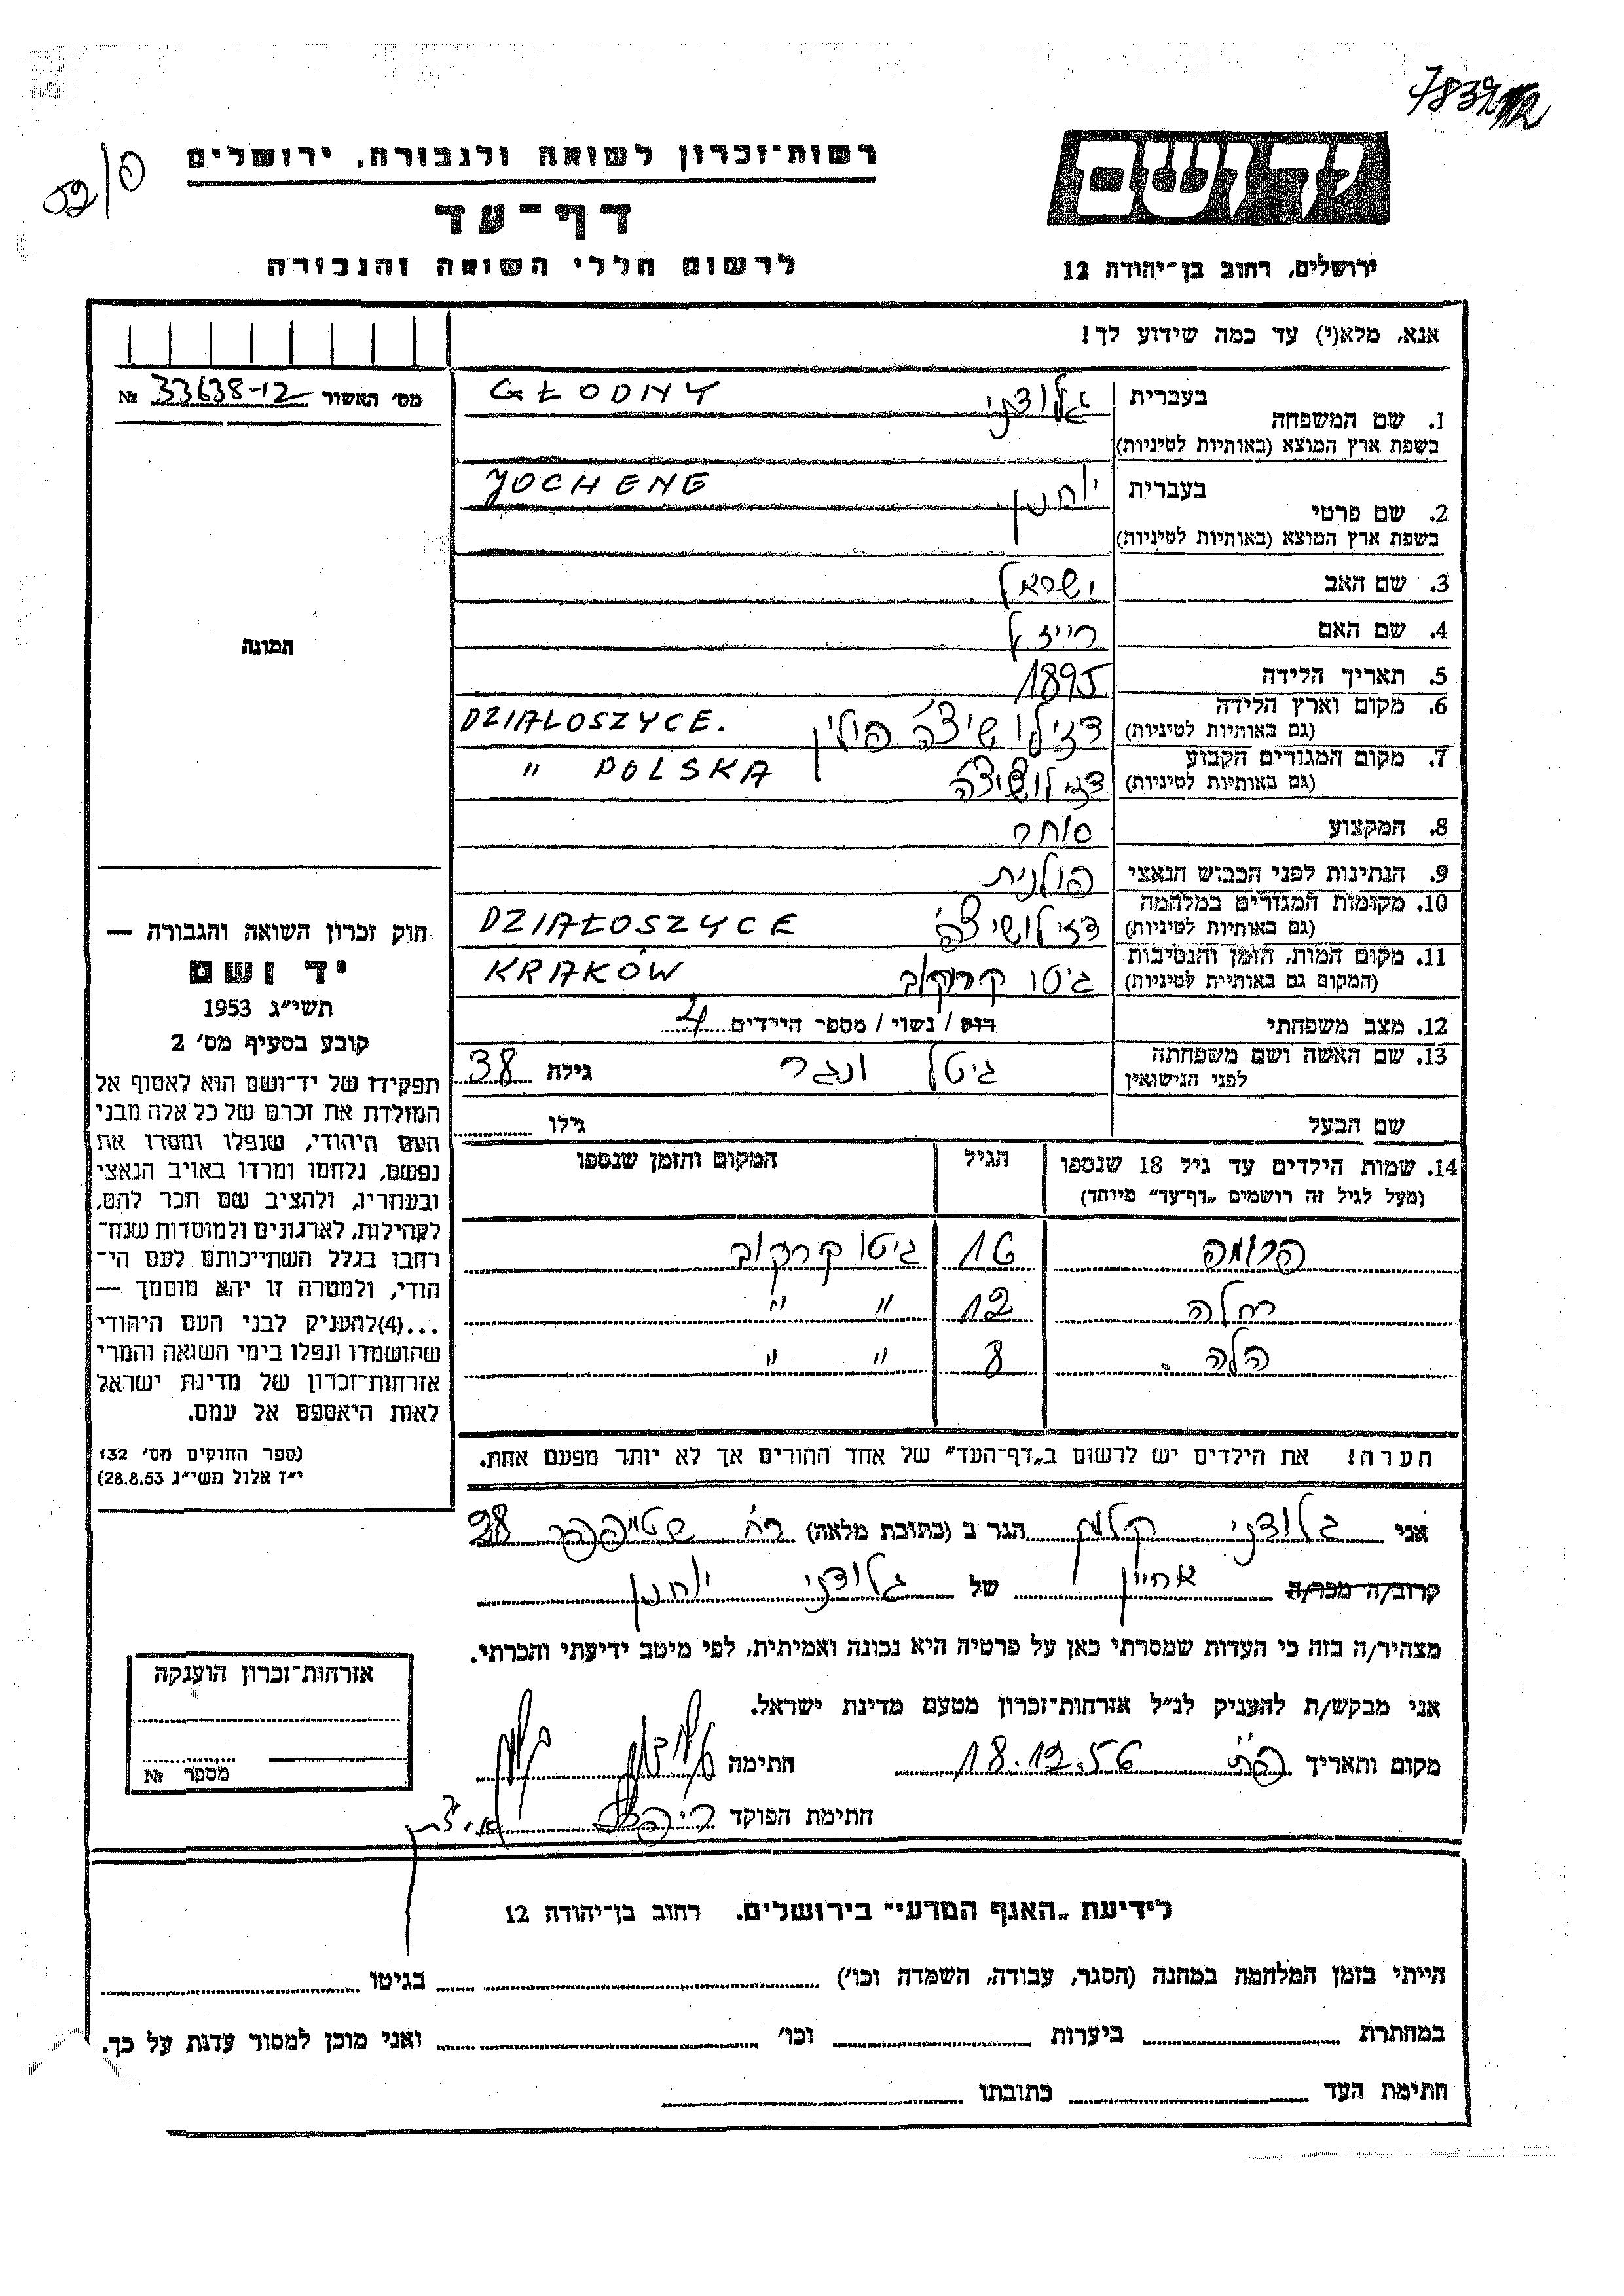 רשות־זכרון לשואה ולגבורה, ירושלים
דף־עד
לרשום חללי השואה והגבורה
יד ושם
ירושלים, רחוב בן־יהודה 12
אנא, מלא(י) עד כמה שידוע לך!
מס׳ האשור 33638-12 №
1. שם המשפחה
בעברית גלודני GŁODNY
בשפת ארץ המוצא (באותיות לטיניות)
2. שם פרטי
בעברית יוחנן JOCHENE
בשפת ארץ המוצא (באותיות לטיניות)
3. שם האב ישראל
4. שם האם רייזל
5. תאריך הלידה 1895
6. מקום וארץ הלידה דזילושיצה פולין DZIALOSZYCE.
(גם באותיות לטיניות)
7. מקום המגורים הקבוע דזילושיצה " POLSKA
(גם באותיות לטיניות)
8. המקצוע סוחר
9. הנתינות לפני הכבוש הנאצי פולנית
10. מקומות המגורים במלחמה דזילושיצה DZIAŁOSZYCE
(גם באותיות לטיניות)
11. מקום המות, הזמן והנסיבות גיטו קרוקוב KRAKÓW
(המקום גם באותיות לטיניות)
12. מצב משפחתי רוק / נשוי / מספר הילדים 4
13. שם האשה ושם משפחתה גיטל ונגר גילה 38
לפני הנישואין
שם הבעל גילו
14. שמות הילדים עד גיל 18 שנספו הגיל המקום והזמן שנספו
(מעל לגיל זה רושמים „דף־עד" מיוחד)
פרומה 16 גיטו קרקוב
רחלה 12 " "
הלה 8 " "
הערה! את הילדים יש לרשום ב„דף־העד" של אחד ההורים אך לא יותר מפעם אחת.
תמונה
חוק זכרון השואה והגבורה —
יד ושם
תשי״ג 1953
קובע בסעיף מס׳ 2
תפקידו של יד־ושם הוא לאסוף אל
המולדת את זכרם של כל אלה מבני
העם היהודי, שנפלו ומסרו את
נפשם, נלחמו ומרדו באויב הנאצי
ובעוזריו, ולהציב שם וזכר להם,
לקהילות, לארגונים ולמוסדות שנח־
רבו בגלל השתייכותם לעם הי־
הודי, ולמטרה זו יהא מוסמך —
...(4)להעניק לבני העם היהודי
שהושמדו ונפלו בימי השואה והמרי
אזרחות־זכרון של מדינת ישראל
לאות היאספם אל עמם.
(ספר החוקים מס׳ 132
י״ז אלול תשי״ג 28.8.53)
אני גלודני קלמן הגר ב (כתובת מלאה) רח׳ שטמפפר 28
קרוב/ה מכר/ה אחיין של גלודני יוחנן
מצהיר/ה בזה כי העדות שמסרתי כאן על פרטיה היא נכונה ואמיתית, לפי מיטב ידיעתי והכרתי.
אני מבקש/ת להעניק לנ״ל אזרחות־זכרון מטעם מדינת ישראל.
מקום ותאריך פ״ת 18.12.56 חתימה
חתימת הפוקד
אזרחות־זכרון הוענקה
מספר №
לידיעת „האגף המדעי" בירושלים. רחוב בן־יהודה 12
הייתי בזמן המלחמה במחנה (הסגר, עבודה, השמדה וכו׳) בגיטו
במחתרת ביערות וכו׳ ואני מוכן למסור עדות על כך.
חתימת העד כתובתו